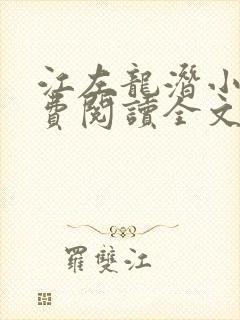 江左龍潛小
費閱讀全文
羅雙江